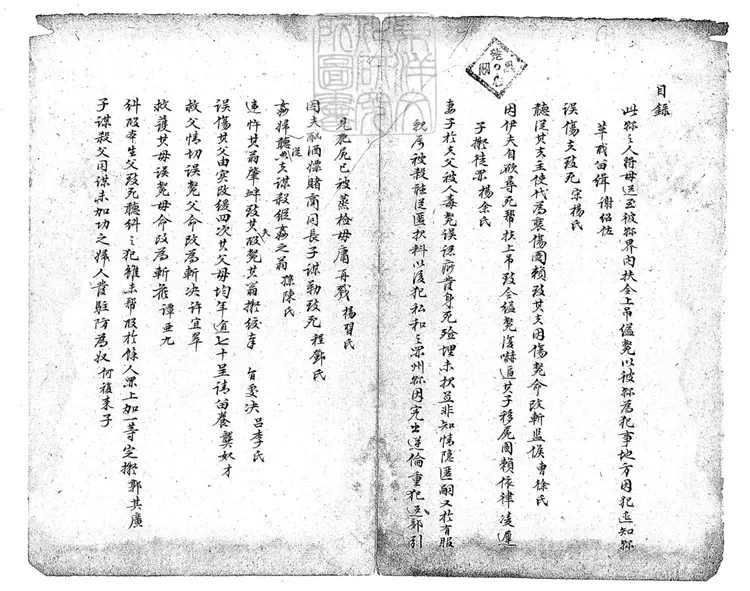 目錄
此縣之人將母送至彼縣界內扶令上吊縊斃以彼縣為犯事地方因犯造知縣
革職留緝 謝紹佐
誤傷夫致死 宋楊氏
聽從其夫主使代為裝傷圖賴致其夫因傷斃命改斬監候 曹徐氏
因伊夫自欲尋死幫扶上吊致令縊斃復嚇逼其子移屍圖賴依律凌遲
子擬徒罪 楊余氏
妻子於夫父被人毒斃誤認痧脹身死殮埋未報並非知情隱匿嗣又於有服
親屬被殺聽從匿報科以復犯私和之罪州縣因究出逆倫重犯
兇犯屍已被蒸檢毋庸再戮 楊習氏
因夫酗酒嫖賭商同長子謀勒致死 程鄧氏
姦婦聽從姦夫謀殺縱姦之翁 孫陳氏
違忤其翁肇衅致其夫毆斃其翁擬絞奉 旨受決 呂李氏
誤傷其父由實改緩四次其父母均年逾七十呈請留養 龔奴才
救父情切誤斃父命改為斬決 許宜翠
救護其母誤斃母命改為斬 譚亞九
糾毆本生父致死聽糾之犯雖未幫毆於餘人罪上加一等定擬 郭其廣
子謀殺父同謀未加功之婦人發駐防為奴 何複来子